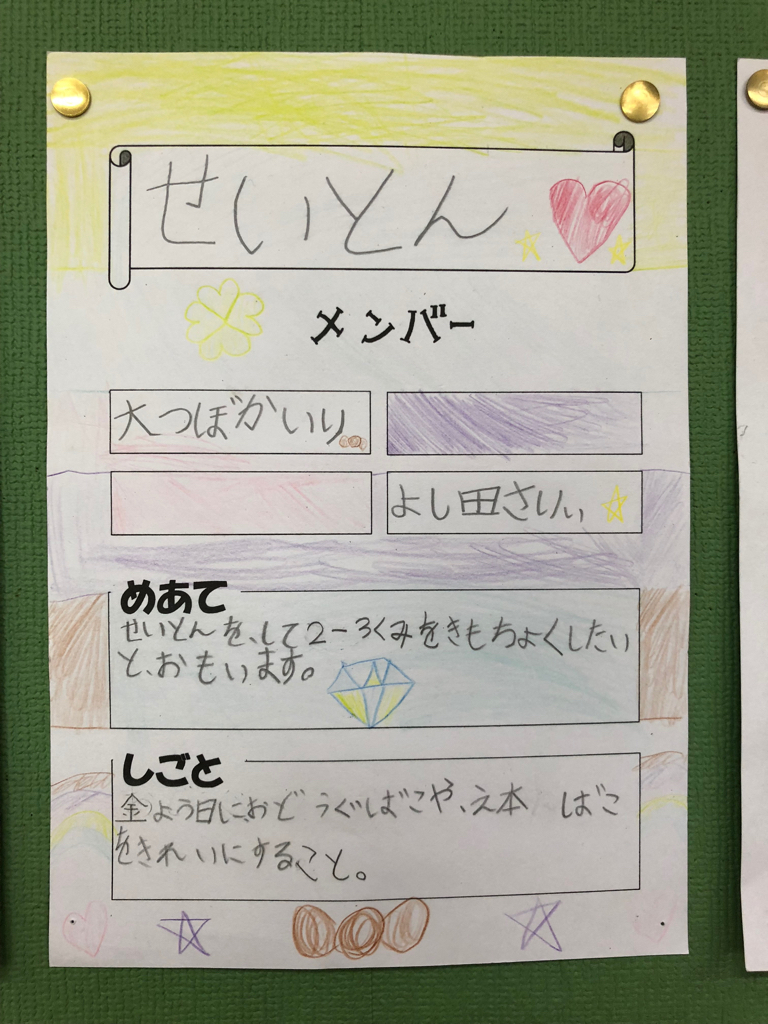 せいとん
メンバー
大つぼかいり
よし田さりい
めあて
せいとんを、して2-3くみをきもちよくしたい
と、おもいます。
しごと
金よう日に、おどうぐばこや、え本ばこ
をきれいにすること。